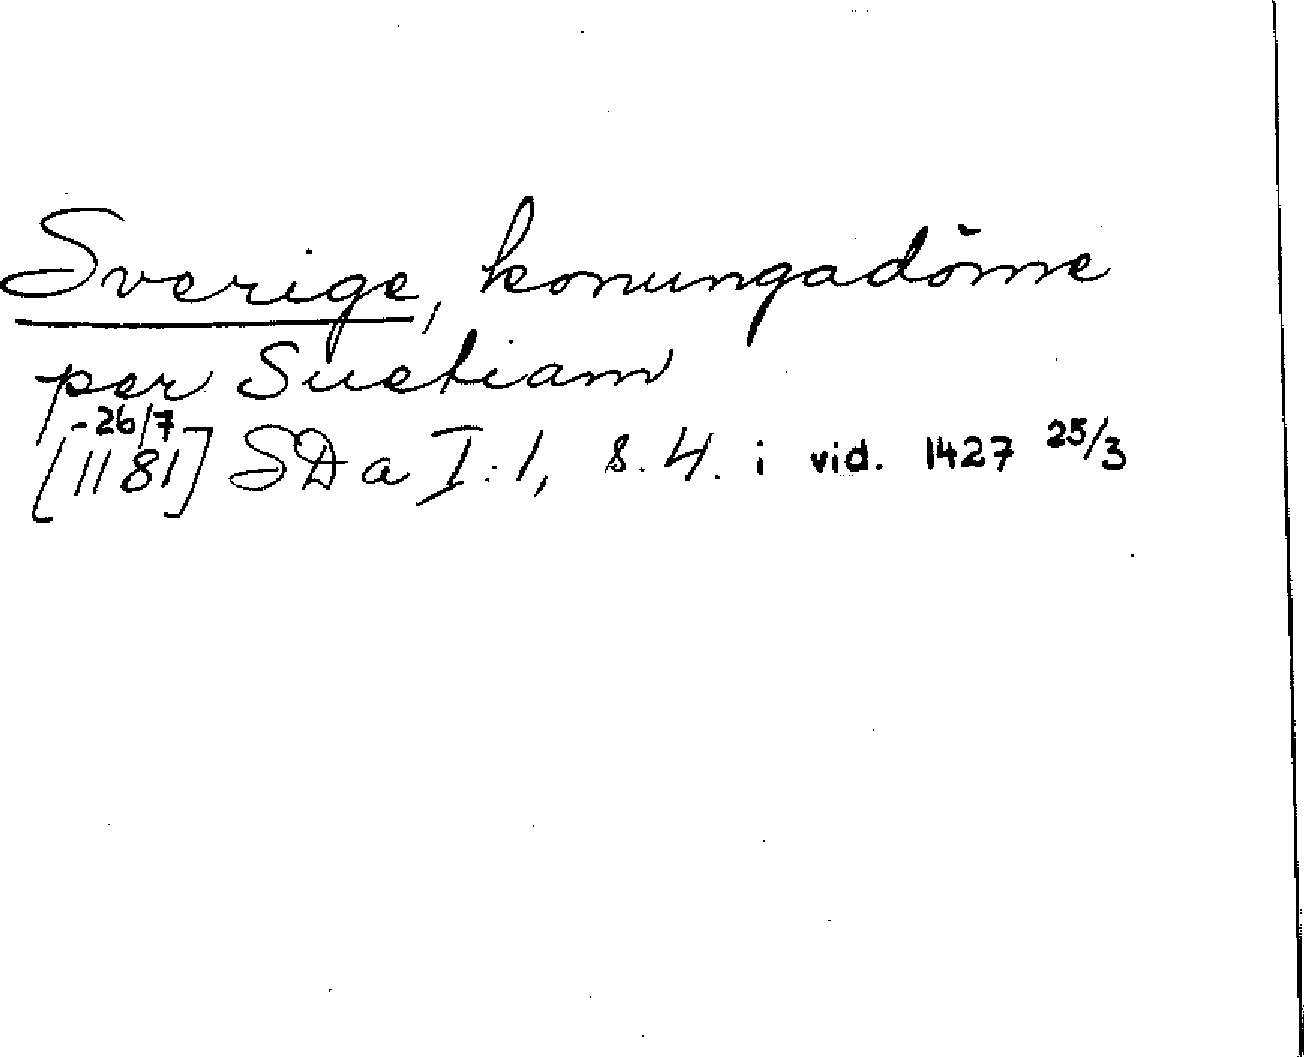 Sverige, konungadöme
per Suetiam
-26/7
[1181] SDa I:1, s. 4. i vid. 1427 25/3